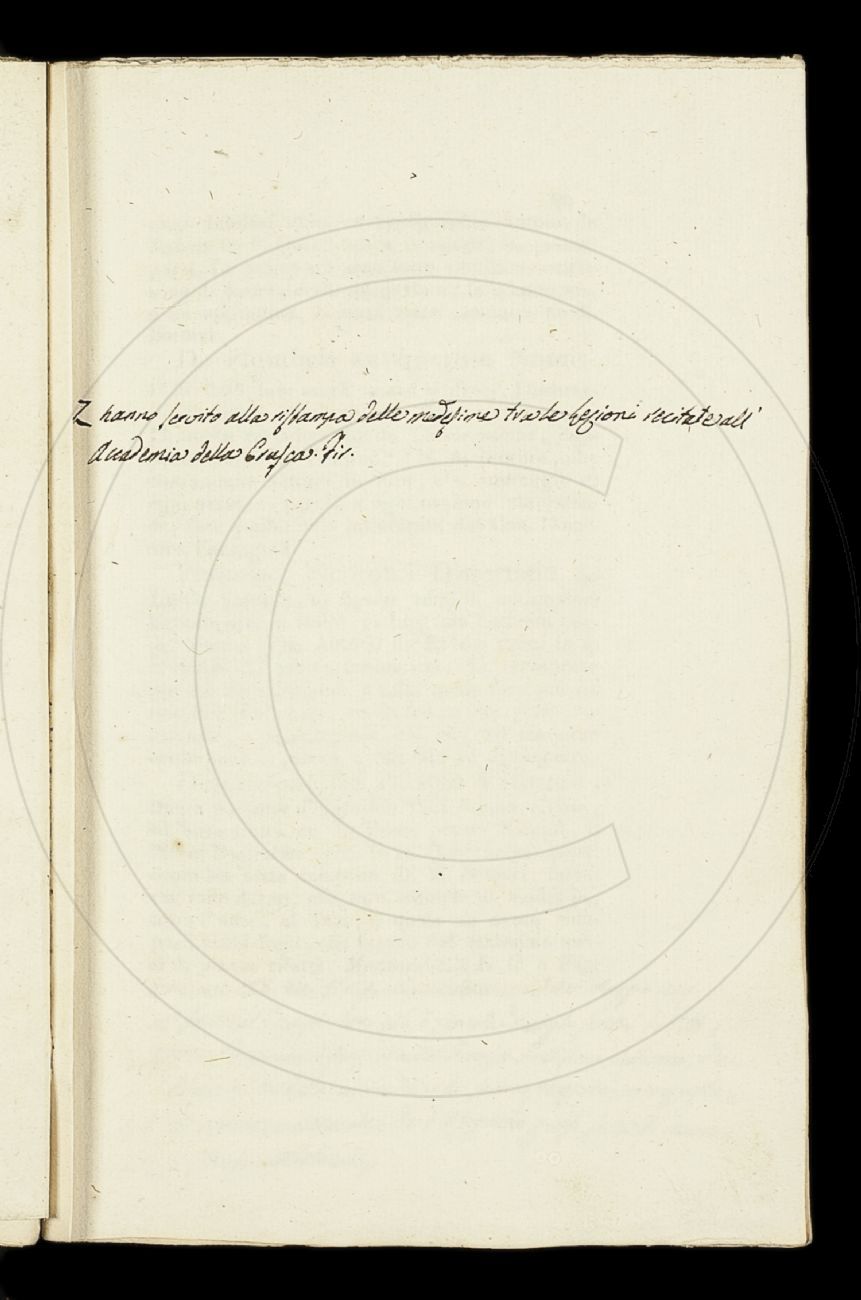 Z hanno servito alla ristampa delle medesime tra le lezioni recitate all'
Accademia della Crusca. Fir.